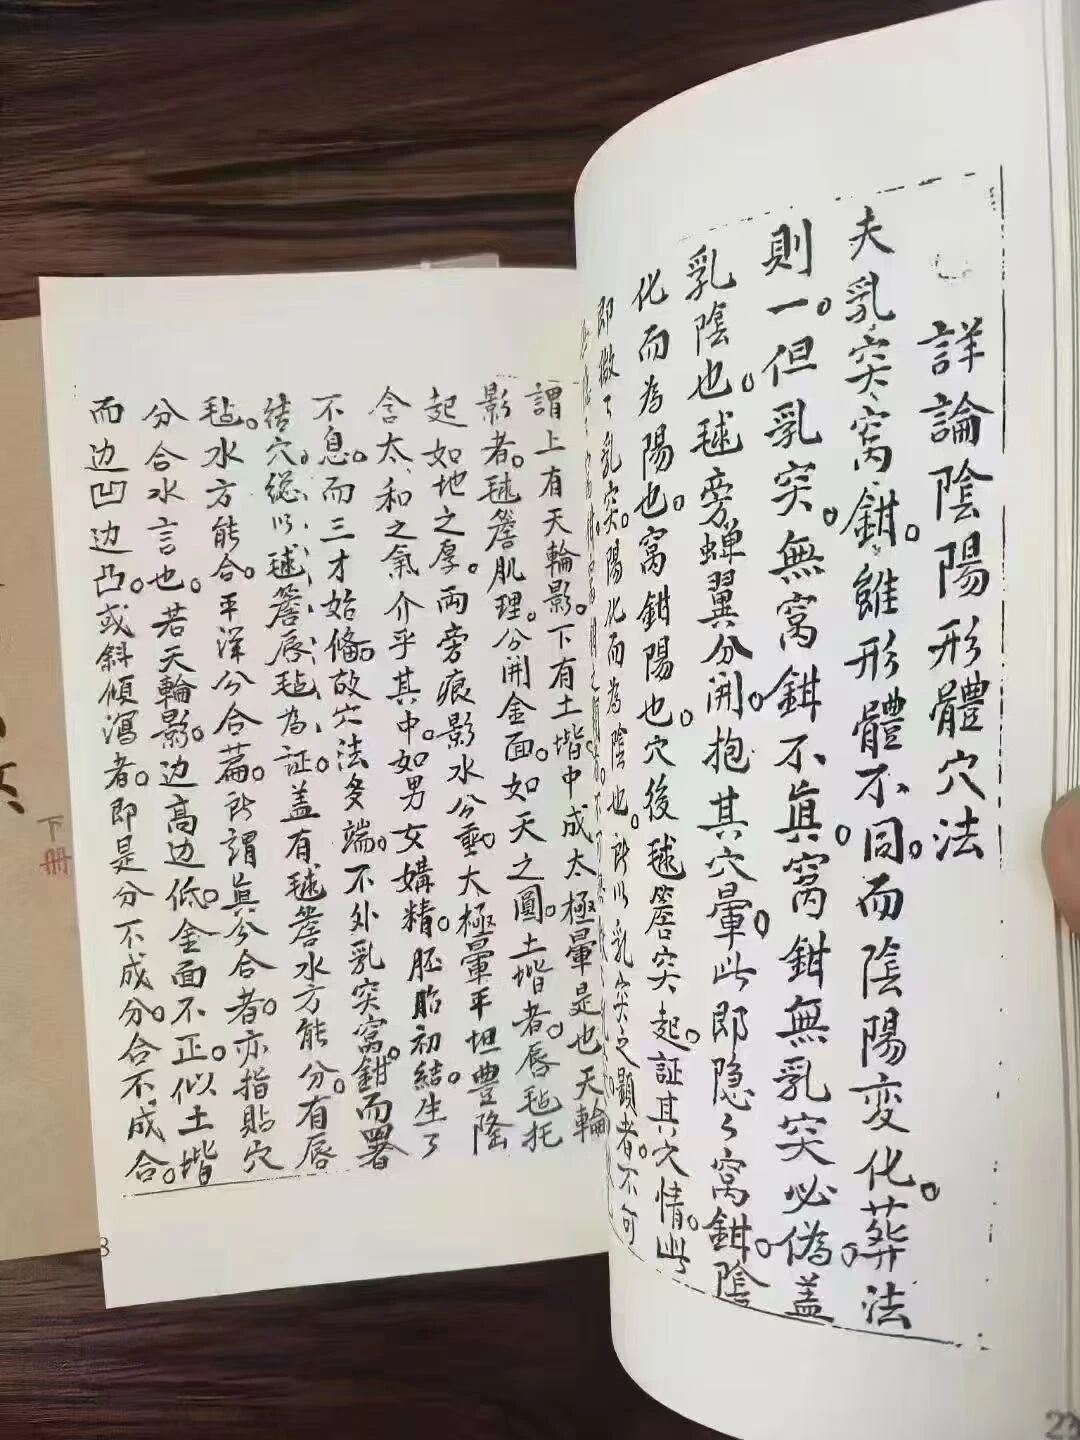 詳論陰陽形體穴法
夫乳突窩鉗。雖形體不同。而陰陽变化。葬法
則一。但乳突。無窩鉗不真。窩鉗無乳突必偽。盖
乳陰也。毬旁蝉翼分開。抱其穴暈。此即隐々窩鉗。陰
化而為陽也。窩鉗陽也。穴後毬簷突起。証其穴情。此
即微了乳突。陽化而為陰也。所以乳突之顯者。不可
謂上有天輪影。下有土堦中成太極暈是也天輪
影者。毬簷肌理。分開金面。如天之圓。土堦者。唇毡托
起如地之厚。兩旁痕影水分垂。太極暈平坦豊隆
含太和之氣介乎其中。如男女媾精。胚胎初結。生了
不息。而三才始備。故穴法多端。不外乳突窩。鉗而畧
结穴。総以毬簷唇毡為証。盖有毬簷水方能分。有唇
毡。水方能合。平洋分合篇。所謂真分合者。亦指貼穴
分合水言也。若天輪影。边高边低。金面不正。似土堦
而边凹边凸。或斜傾瀉者。即是分不成分。合不成合。
下册
23